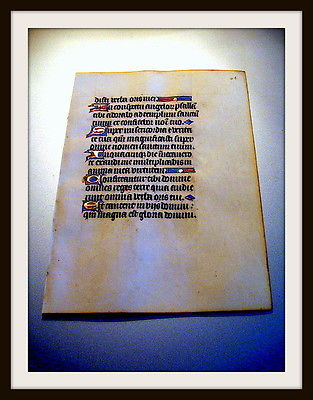 disti verba oris mei
In conspectu angelorum psallam
tibi adorabo ad templum sanctū
tuum et confitebor noī tuo
Super misericordia et verita
te tua qm̄ magnificasti super
omne nomen sanctum tuum
In quacunqz die invocavero
te exaudi me multiplicabis in
anima mea virtutem
Confiteantur tibi domine
omnes reges terre quia audie
runt omnia verba oris tui
Et cantent in viis domini
qm̄ magna est gloria domini